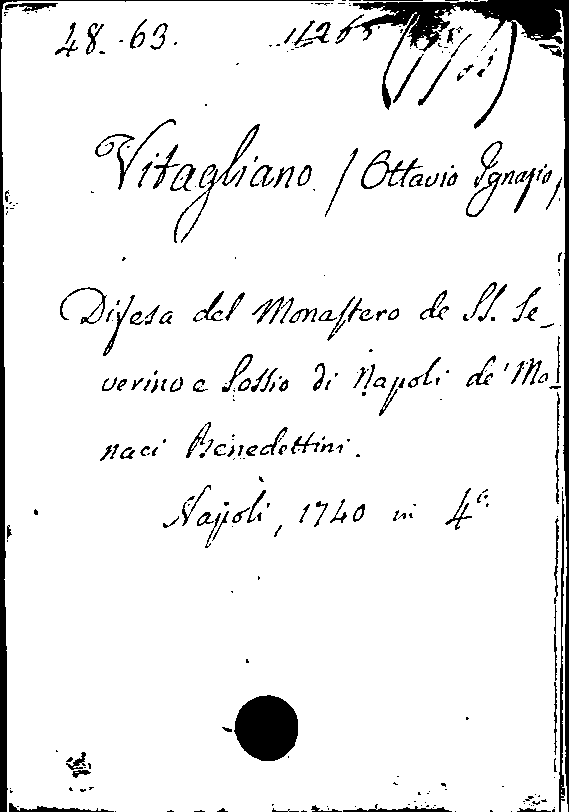 48.-63. 11265
Vitagliano / Ottavio Ignazio /
Difesa del Monastero de SS. Se-
verino e Sossio di Napoli de' Mo-
naci Benedettini.
Napoli, 1740 in 4º